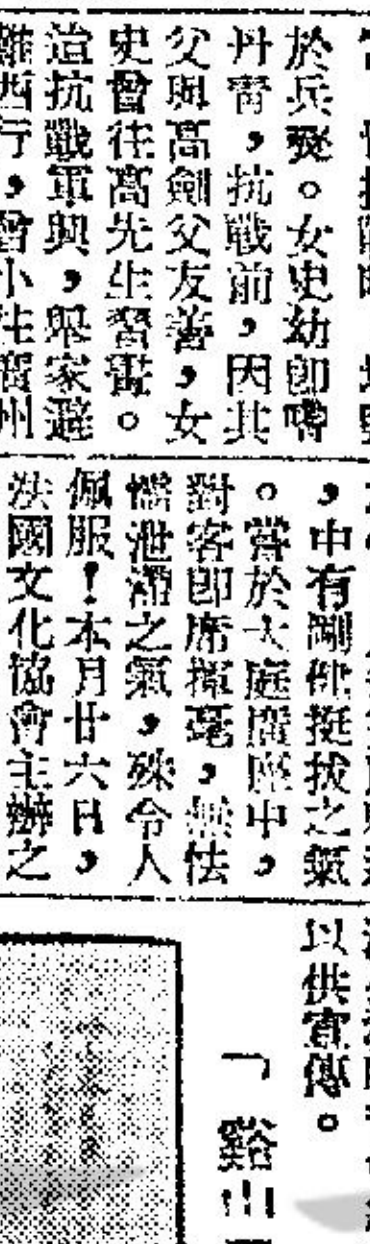 於兵燹。女史幼即嗜
丹青，抗戰前，因其
父與高劍父友善，女
史曾往高先生習畫。
迨抗戰軍興，舉家避
難西行，曾小住貴州
，中有剛健挺拔之氣
。嘗於大庭廣座中，
對客即席揮毫，無怯
懦泄滯之氣，殊令人
佩服！本月廿六日，
法國文化協會主辦之
以供宣傳。
「谿山